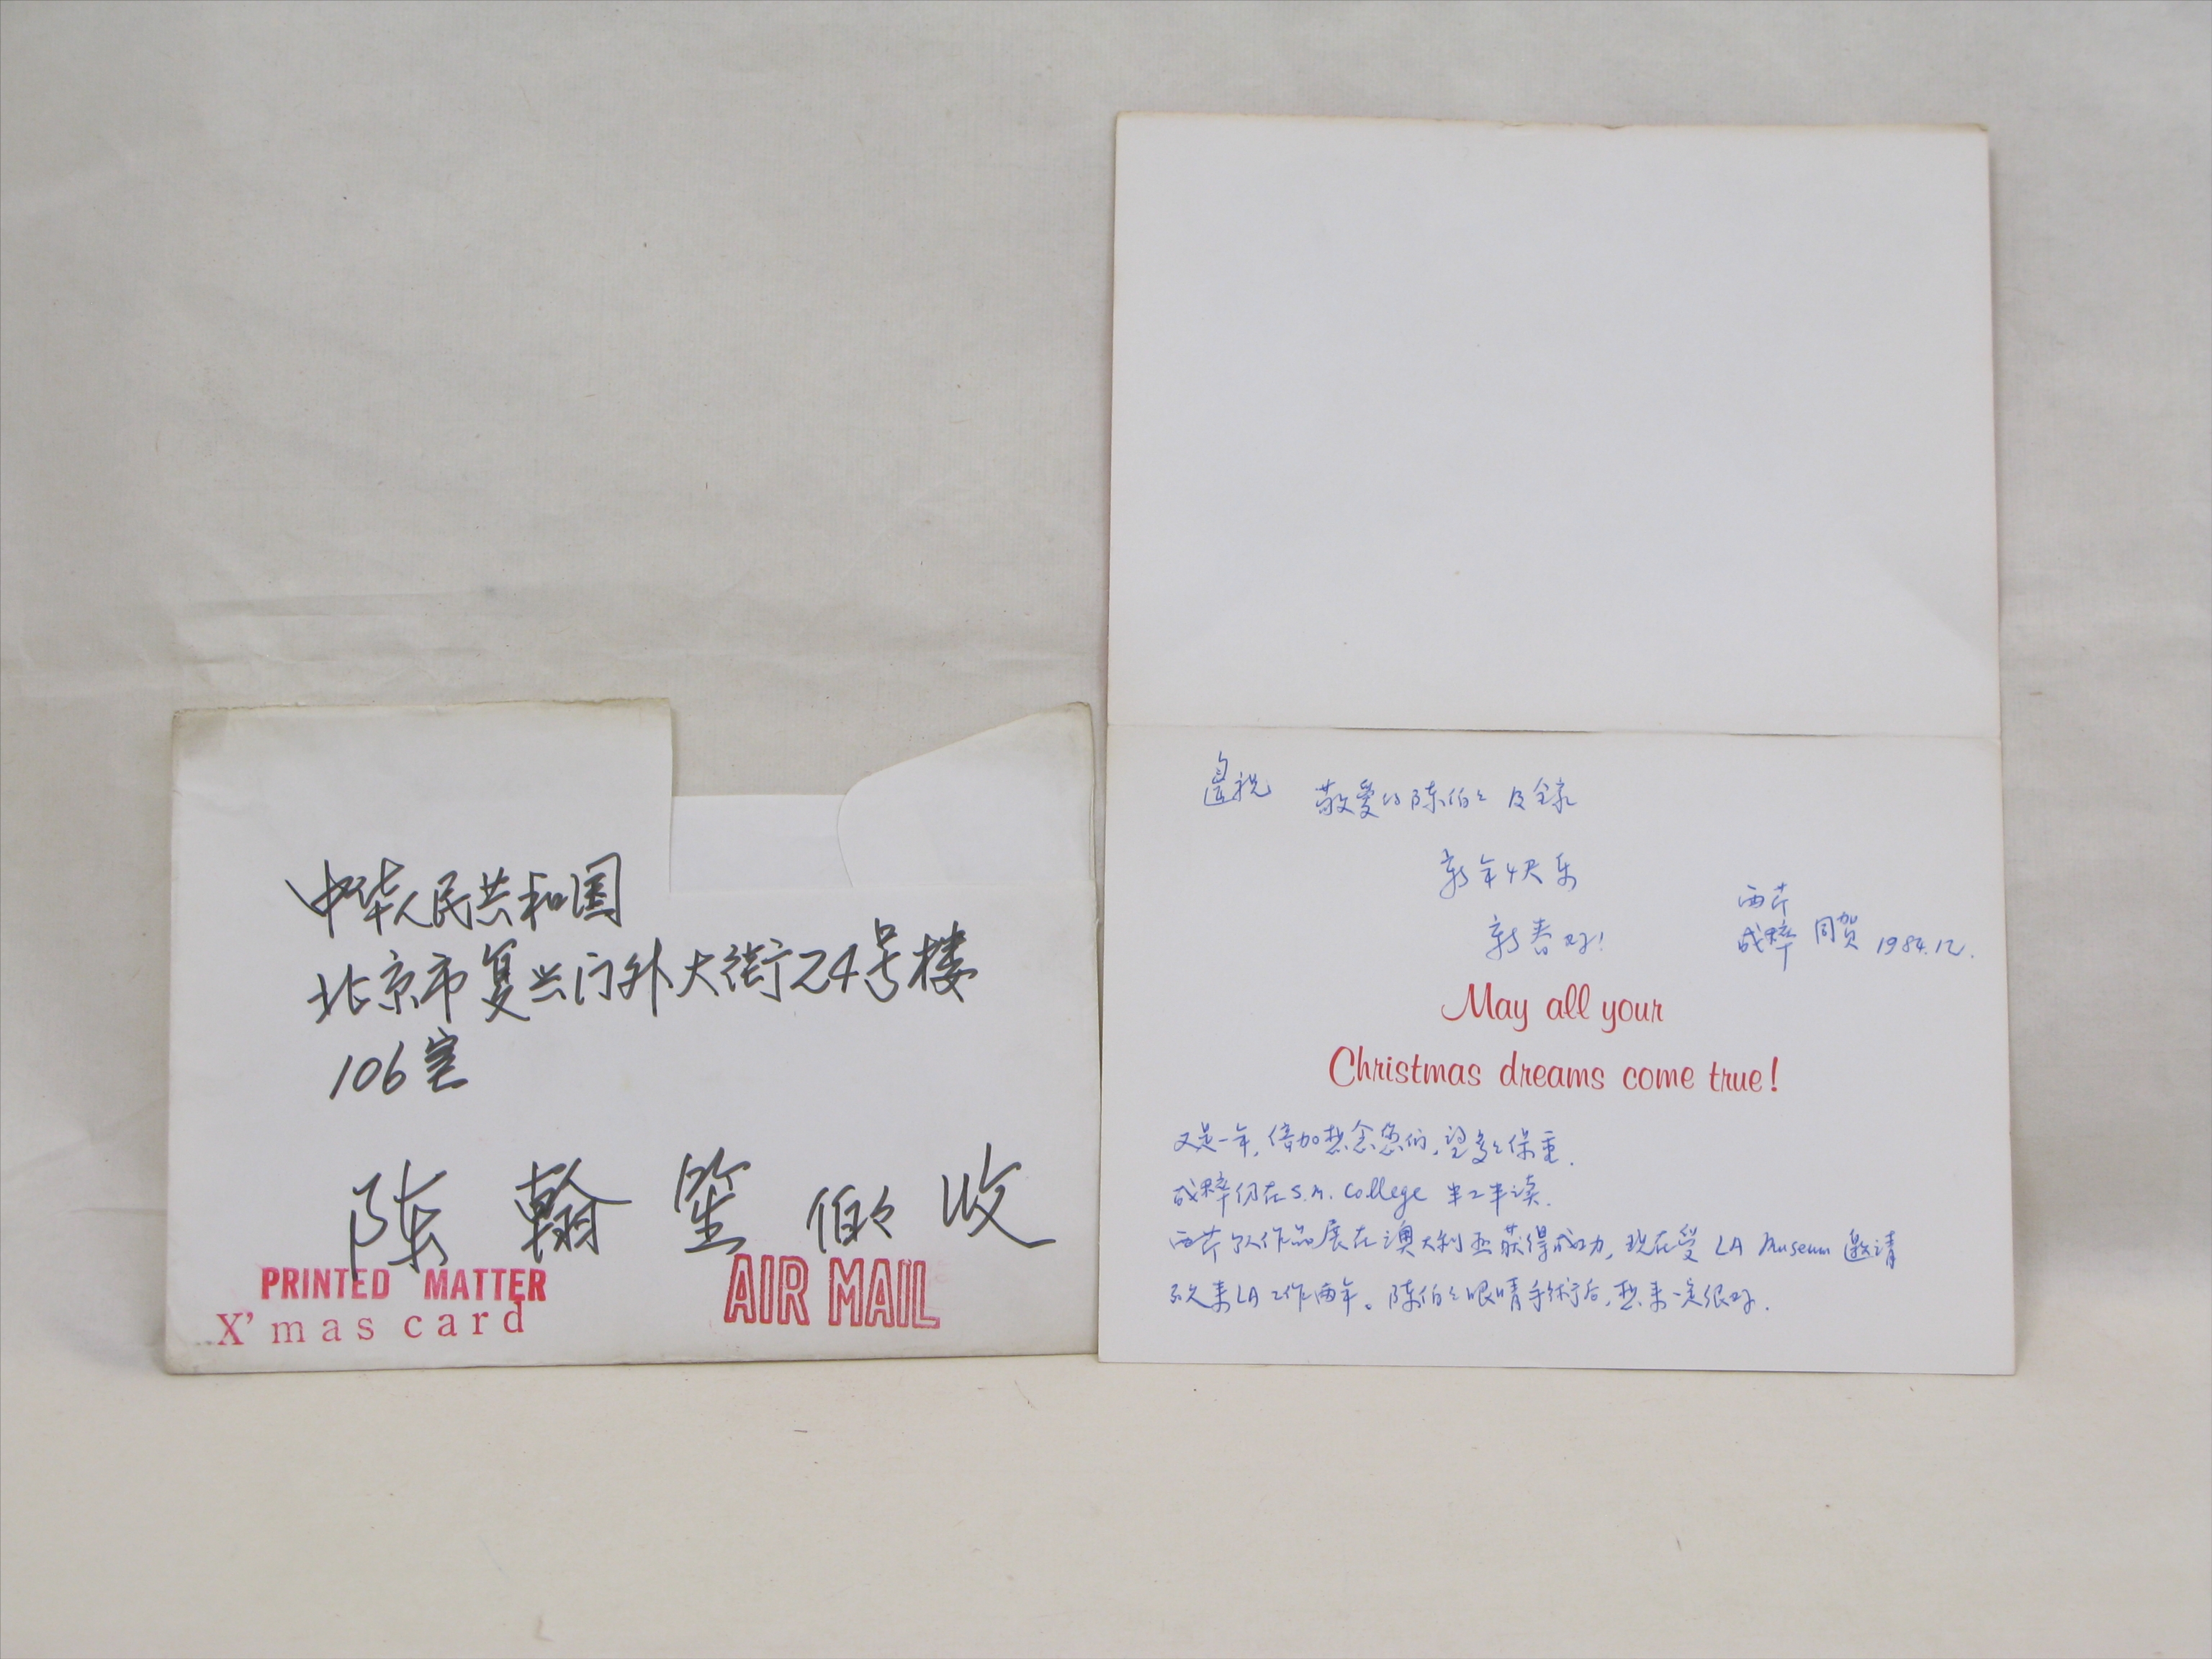 中华人民共和国
北京市复兴门外大街24号楼
106室
陈翰笙伯々收
PRINTED MATTER
X'mas card
AIR MAIL
遥祝 敬爱的陈伯々及全家
新年快乐
新春好!
西芹
成粹 同贺 1984.12.
May all your
Christmas dreams come true!
又是一年,倍加想念您们,望多々保重.
成粹仍在S.M. College 半工半读.
西芹 作品展在澳大利亚获得成功,现在受 LA Museum 邀请
来LA工作两年。陈伯々眼睛手術后,想来一定很好.